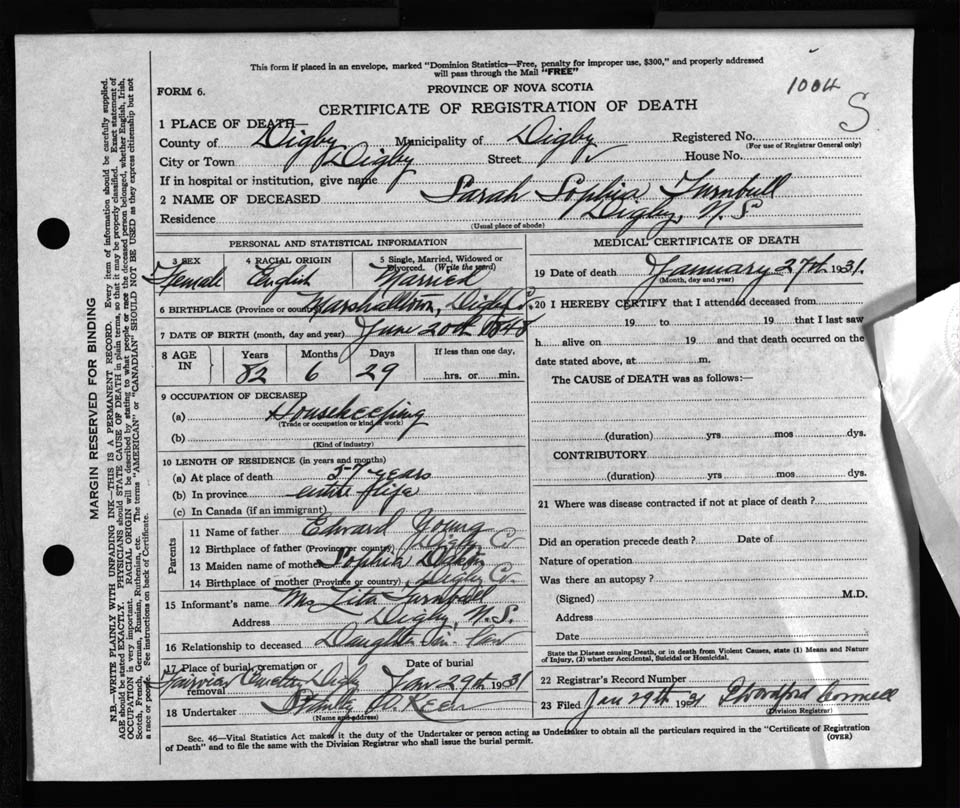 This form if placed in an envelope, marked "Dominion Statistics—Free, penalty for improper use, $300," and properly addressed
will pass through the Mail "FREE"
1004
S
FORM 6.
PROVINCE OF NOVA SCOTIA
CERTIFICATE OF REGISTRATION OF DEATH
1 PLACE OF DEATH—
County of Digby Municipality of Digby Registered No.
(For use of Registrar General only)
City or Town Digby Street House No.
If in hospital or institution, give name
2 NAME OF DECEASED Sarah Sophia Turnbull
Residence Digby, N.S
(Usual place of abode)
PERSONAL AND STATISTICAL INFORMATION
3 SEX Female
4 RACIAL ORIGIN English
5 Single, Married, Widowed or Divorced. (Write the word) Married
6 BIRTHPLACE (Province or country) Marshalltown, Digby Co.
7 DATE OF BIRTH (month, day and year) June 20th 1848
8 AGE IN Years 82 Months 6 Days 29 If less than one day, hrs. or min.
9 OCCUPATION OF DECEASED
(a) Housekeeping
(Trade or occupation or kind of work)
(b)
(Kind of industry)
10 LENGTH OF RESIDENCE (in years and months)
(a) At place of death 57 years
(b) In province entire life
(c) In Canada (if an immigrant)
Parents
11 Name of father Edward Young
12 Birthplace of father (Province or country) Digby Co
13 Maiden name of mother Sophia
14 Birthplace of mother (Province or country) Digby Co.
15 Informant's name Mrs Lita Turnbull
Address Digby, N.S.
16 Relationship to deceased Daughter-in-law
17 Place of burial, cremation or removal Fairview Cemetery Digby
Date of burial Jan 29th 1931
18 Undertaker Stanley
(Name and address)
MEDICAL CERTIFICATE OF DEATH
19 Date of death January 27th 1931.
(Month, day and year)
20 I HEREBY CERTIFY that I attended deceased from
19 to 19 that I last saw
h alive on 19 and that death occurred on the
date stated above, at m.
The CAUSE of DEATH was as follows:—
(duration) yrs mos dys.
CONTRIBUTORY
(duration) yrs. mos. dys.
21 Where was disease contracted if not at place of death?
Did an operation precede death? Date of
Nature of operation
Was there an autopsy?
(Signed) M.D.
Address
Date
State the Disease causing Death, or in death from Violent Causes, state (1) Means and Nature
of Injury, (2) whether Accidental, Suicidal or Homicidal.
22 Registrar's Record Number
23 Filed Jan 29th 1931
(Division Registrar)
Sec. 46—Vital Statistics Act makes it the duty of the Undertaker or person acting as Undertaker to obtain all the particulars required in the "Certificate of Registration
of Death" and to file the same with the Division Registrar who shall issue the burial permit.
(OVER)
MARGIN RESERVED FOR BINDING
N.B—WRITE PLAINLY WITH UNFADING INK—THIS IS A PERMANENT RECORD. Every item of information should be carefully supplied.
AGE should be stated EXACTLY. PHYSICIANS should STATE CAUSE OF DEATH in plain terms, so that it may be properly classified. Exact statement of
OCCUPATION is very important. RACIAL ORIGIN will be described by stating to what people or race the deceased person belonged, whether English, Irish,
Scotch, French, German, Russian, Ruthenian, etc. The terms "AMERICAN" or "CANADIAN" SHOULD NOT BE USED as they express citizenship but not
a race or people. See instructions on back of Certificate.